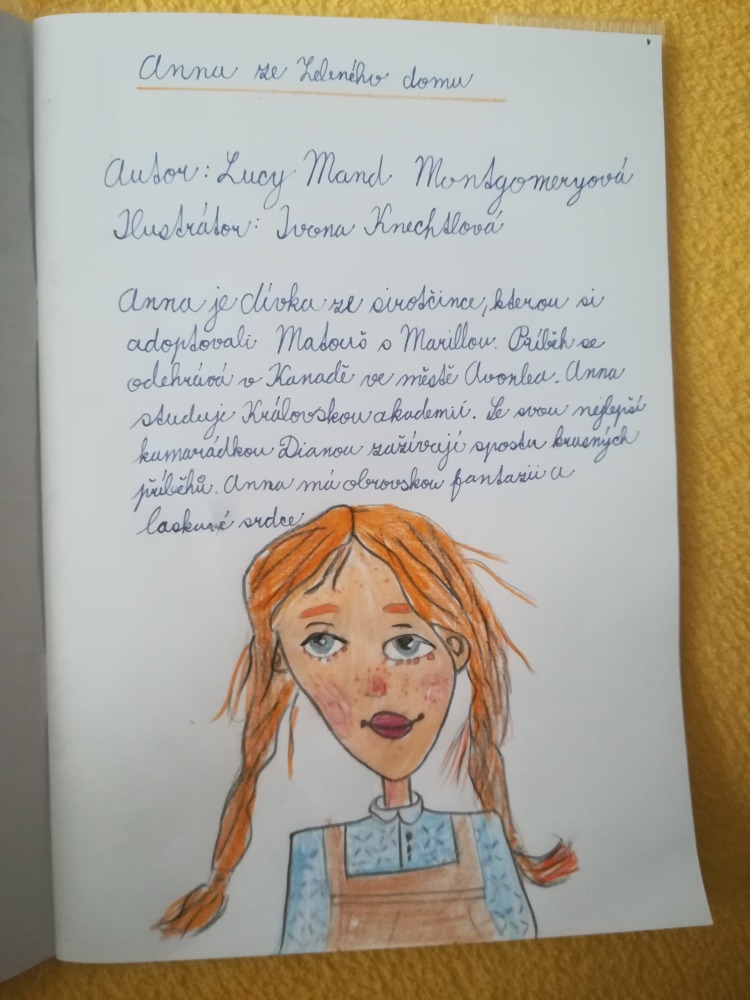 Anna ze Zeleného domu
Autor: Lucy Mand Montgomeryová
Ilustrátor: Ivona Knechtlová
Anna je dívka ze sirotčince, kterou si
adoptovali Matouš s Marillou. Příběh se
odehrává v Kanadě ve městě Avonlea. Anna
studuje Královskou akademii. Se svou nejlepší
kamarádkou Dianou zažívají spostu krásných
příběhů. Anna má obrovskou fantazii a
laskavé srdce